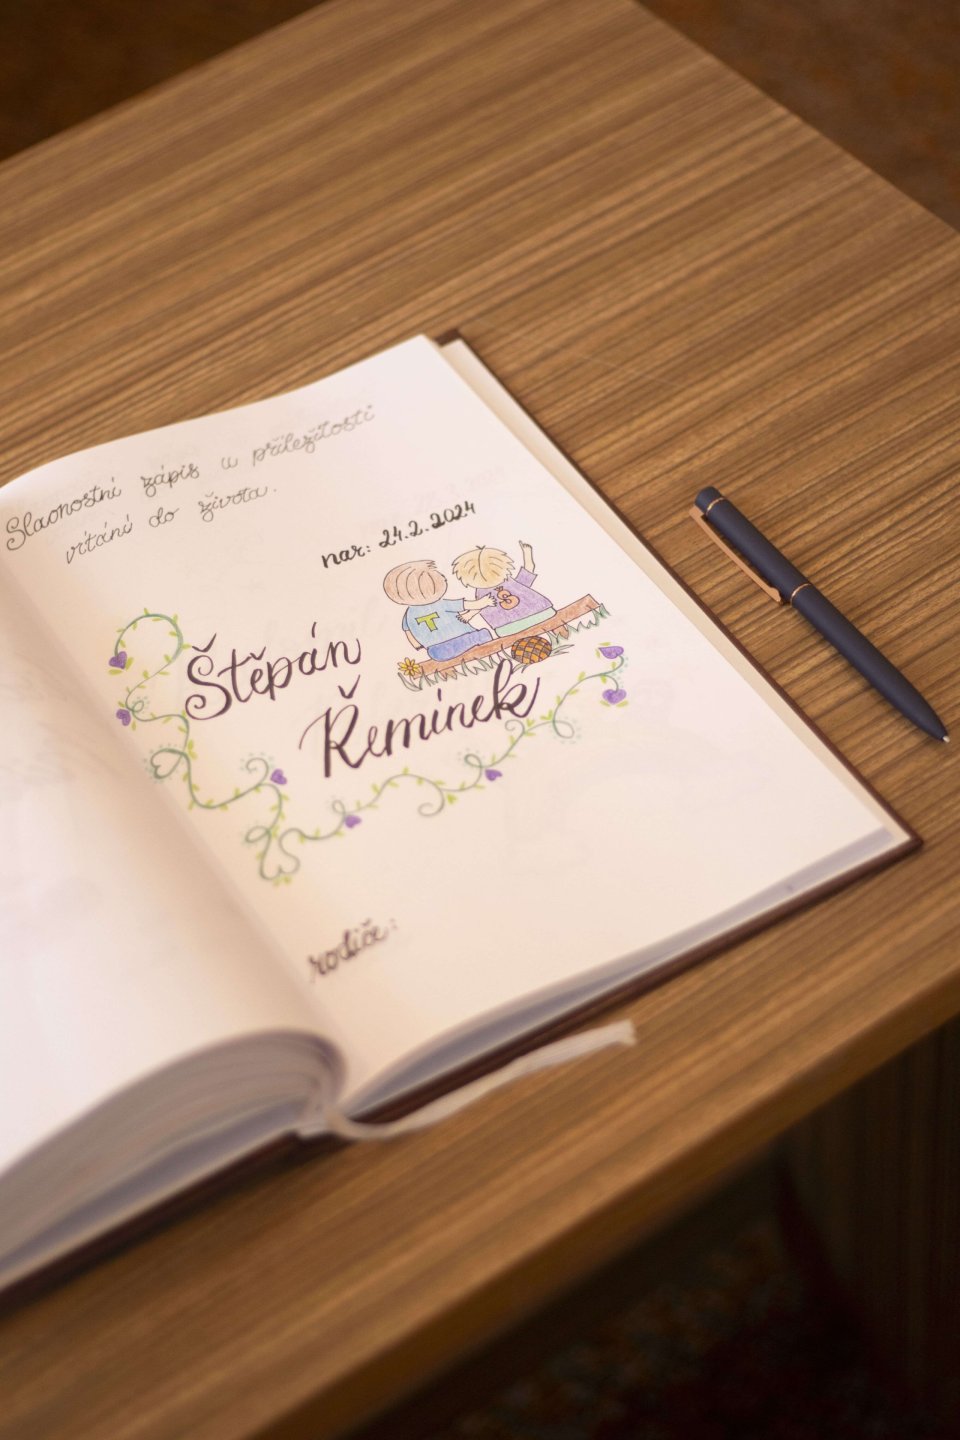 Slavnostní zápis u příležitosti
vítání do života.
nar: 24.2.2024
T
S
Štěpán
Řemínek
rodiče: